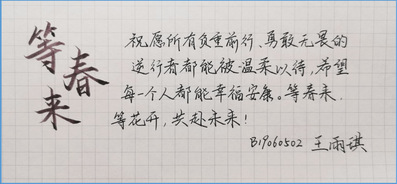 等春来
祝愿所有负重前行、勇敢无畏的
逆行者都能被温柔以待,希望
每一个人都能幸福安康。等春来,
等花开,共赴未来!
B19060502 王雨琪